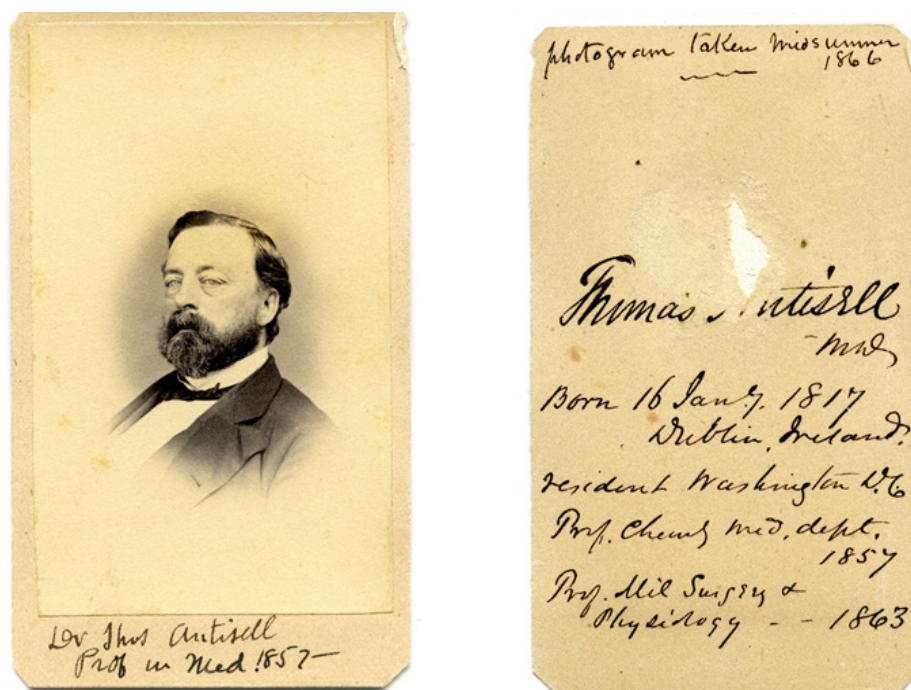 Dr Thos Antisell
Prof in Med. 1857-
photogram taken midsummer
1866
Thomas ntisell
MD
Born 16 Jany. 1817
Dublin, Ireland.
resident Washington D.C.
Prof. Chemy Med. dept.
1857
Prof. Mil Surgery &
Physiology - - 1863